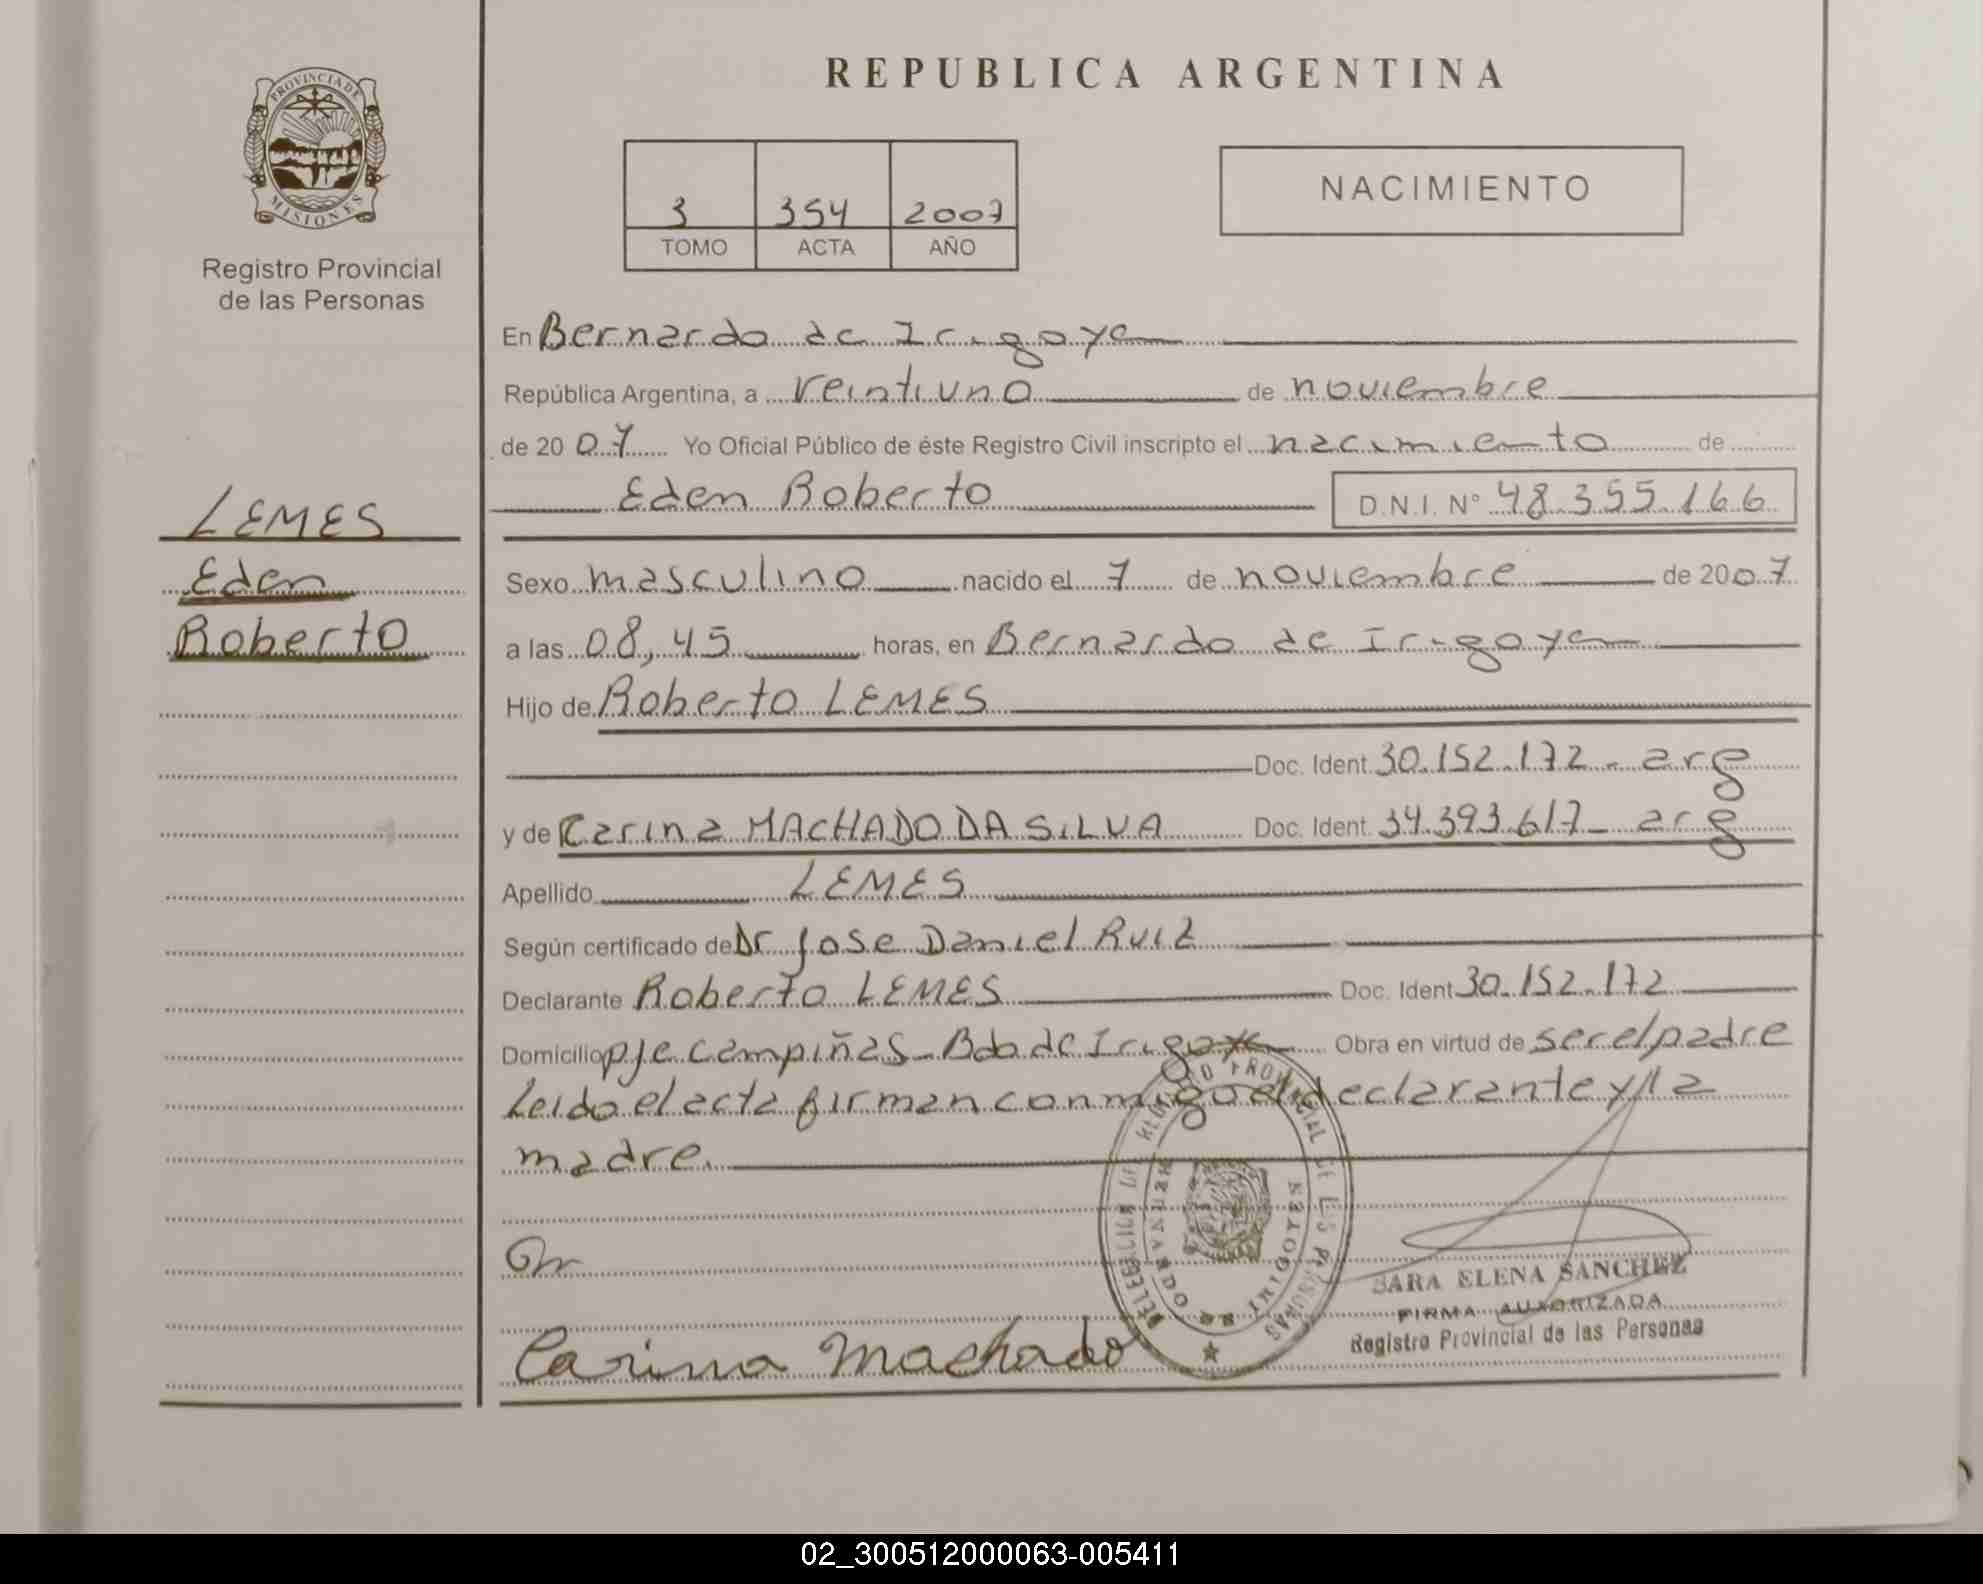 REPUBLICA ARGENTINA
PROVINCIA DE MISIONES
Registro Provincial
de las Personas
3 354 2007
TOMO ACTA AÑO
NACIMIENTO
LEMES
Eden
Roberto
En Bernardo de Irigoyen
República Argentina, a veintiuno de noviembre
de 2007 Yo Oficial Público de éste Registro Civil inscripto el nacimiento de
Eden Roberto D.N.I. Nº 48.355.166
Sexo masculino nacido el 7 de noviembre de 2007
a las 08,45 horas, en Bernardo de Irigoyen
Hijo de Roberto LEMES
Doc. Ident. 30.152.172 - arg
y de Carina MACHADO DA SILVA Doc. Ident. 34.393.617 - arg
Apellido LEMES
Según certificado de Dr Jose Daniel Ruiz
Declarante Roberto LEMES Doc. Ident 30.152.172
Domicilio pje campiñas - Bdo de Irigoyen Obra en virtud de ser el padre
Leido el acta firman conmigo el declarante y la
madre.
DELEGACION DEL REGISTRO PROVINCIAL DE LAS PERSONAS
BERNARDO DE IRIGOYEN
SARA ELENA SANCHEZ
FIRMA AUTORIZADA
Registro Provincial de las Personas
Carina Machado
02_300512000063-005411